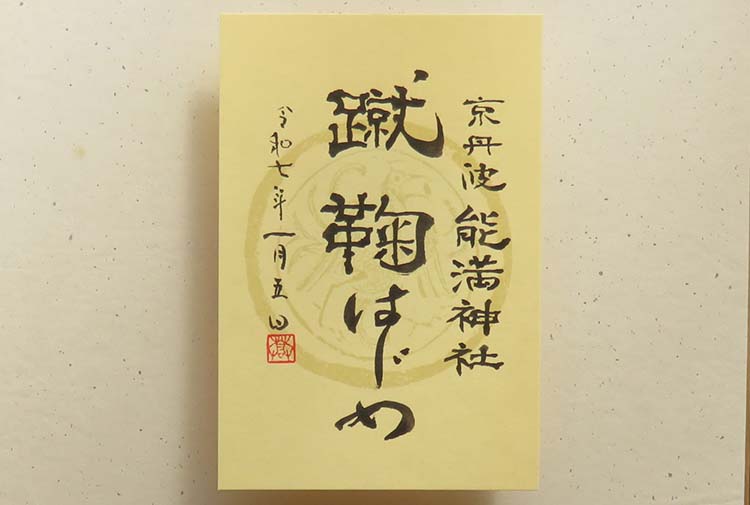 京丹波 能満神社
蹴鞠はじめ
令和七年 一月五日